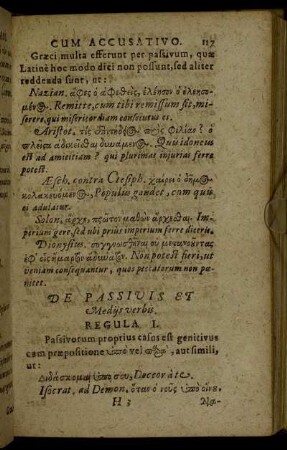 CUM ACCUSATIVO. 117
Græci multa efferunt per passivum, quæ
Latinè hoc modo dici non possunt, sed aliter
reddenda sunt, ut:
Nazian. ἄφες ὁ ἀφεθεὶς, ἐλέησον ὁ ἐλεησό-
μενος. Remitte, cum tibi remissum sit, mi-
serere, qui misericordiam consecutus es.
Aristot. τίς πρὸς φιλίας; ὁ
πλεῖστα ἀδικεῖσθαι δυνάμενος. Quis idoneus
est ad amicitiam? qui plurimas injurias ferre
potest.
Æsch. contra Ctesiph. χαίρει ὁ δῆμος
κολακευόμενος, Populus gaudet, cum quis
ei adulatur.
Solon, ἄρχε, πρῶτον μαθὼν ἄρχεσθαι. Im-
perium gere, sed ubi prius imperium ferre diceris.
Dionysius. συγγνωσθῆναι μὴ μετανοοῦντας
ἐφ' οἷς ἥμαρτον ἀδύνατον. Non potest fieri, ut
veniam consequantur, quos peccatorum non pœ-
nitet.
DE PASSIVIS ET
Medijs verbis.
REGULA I.
Passivorum proprius casus est genitivus
cum præpositione ὑπὸ vel πρὸς, aut simili,
ut:
Διδάσκομαι ὑπὸ σου, Doceor à te.
Isocrat. ad Demon. ὅταν ὁ νοῦς ὑπὸ οἴνου
H 3